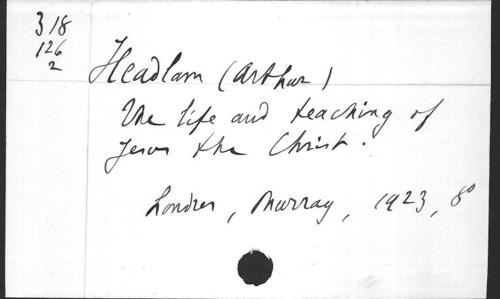 318
126
2
Headlam (Arthur)
The life and teaching of
Jesus the Christ.
Londres, Murray, 1923, 8°